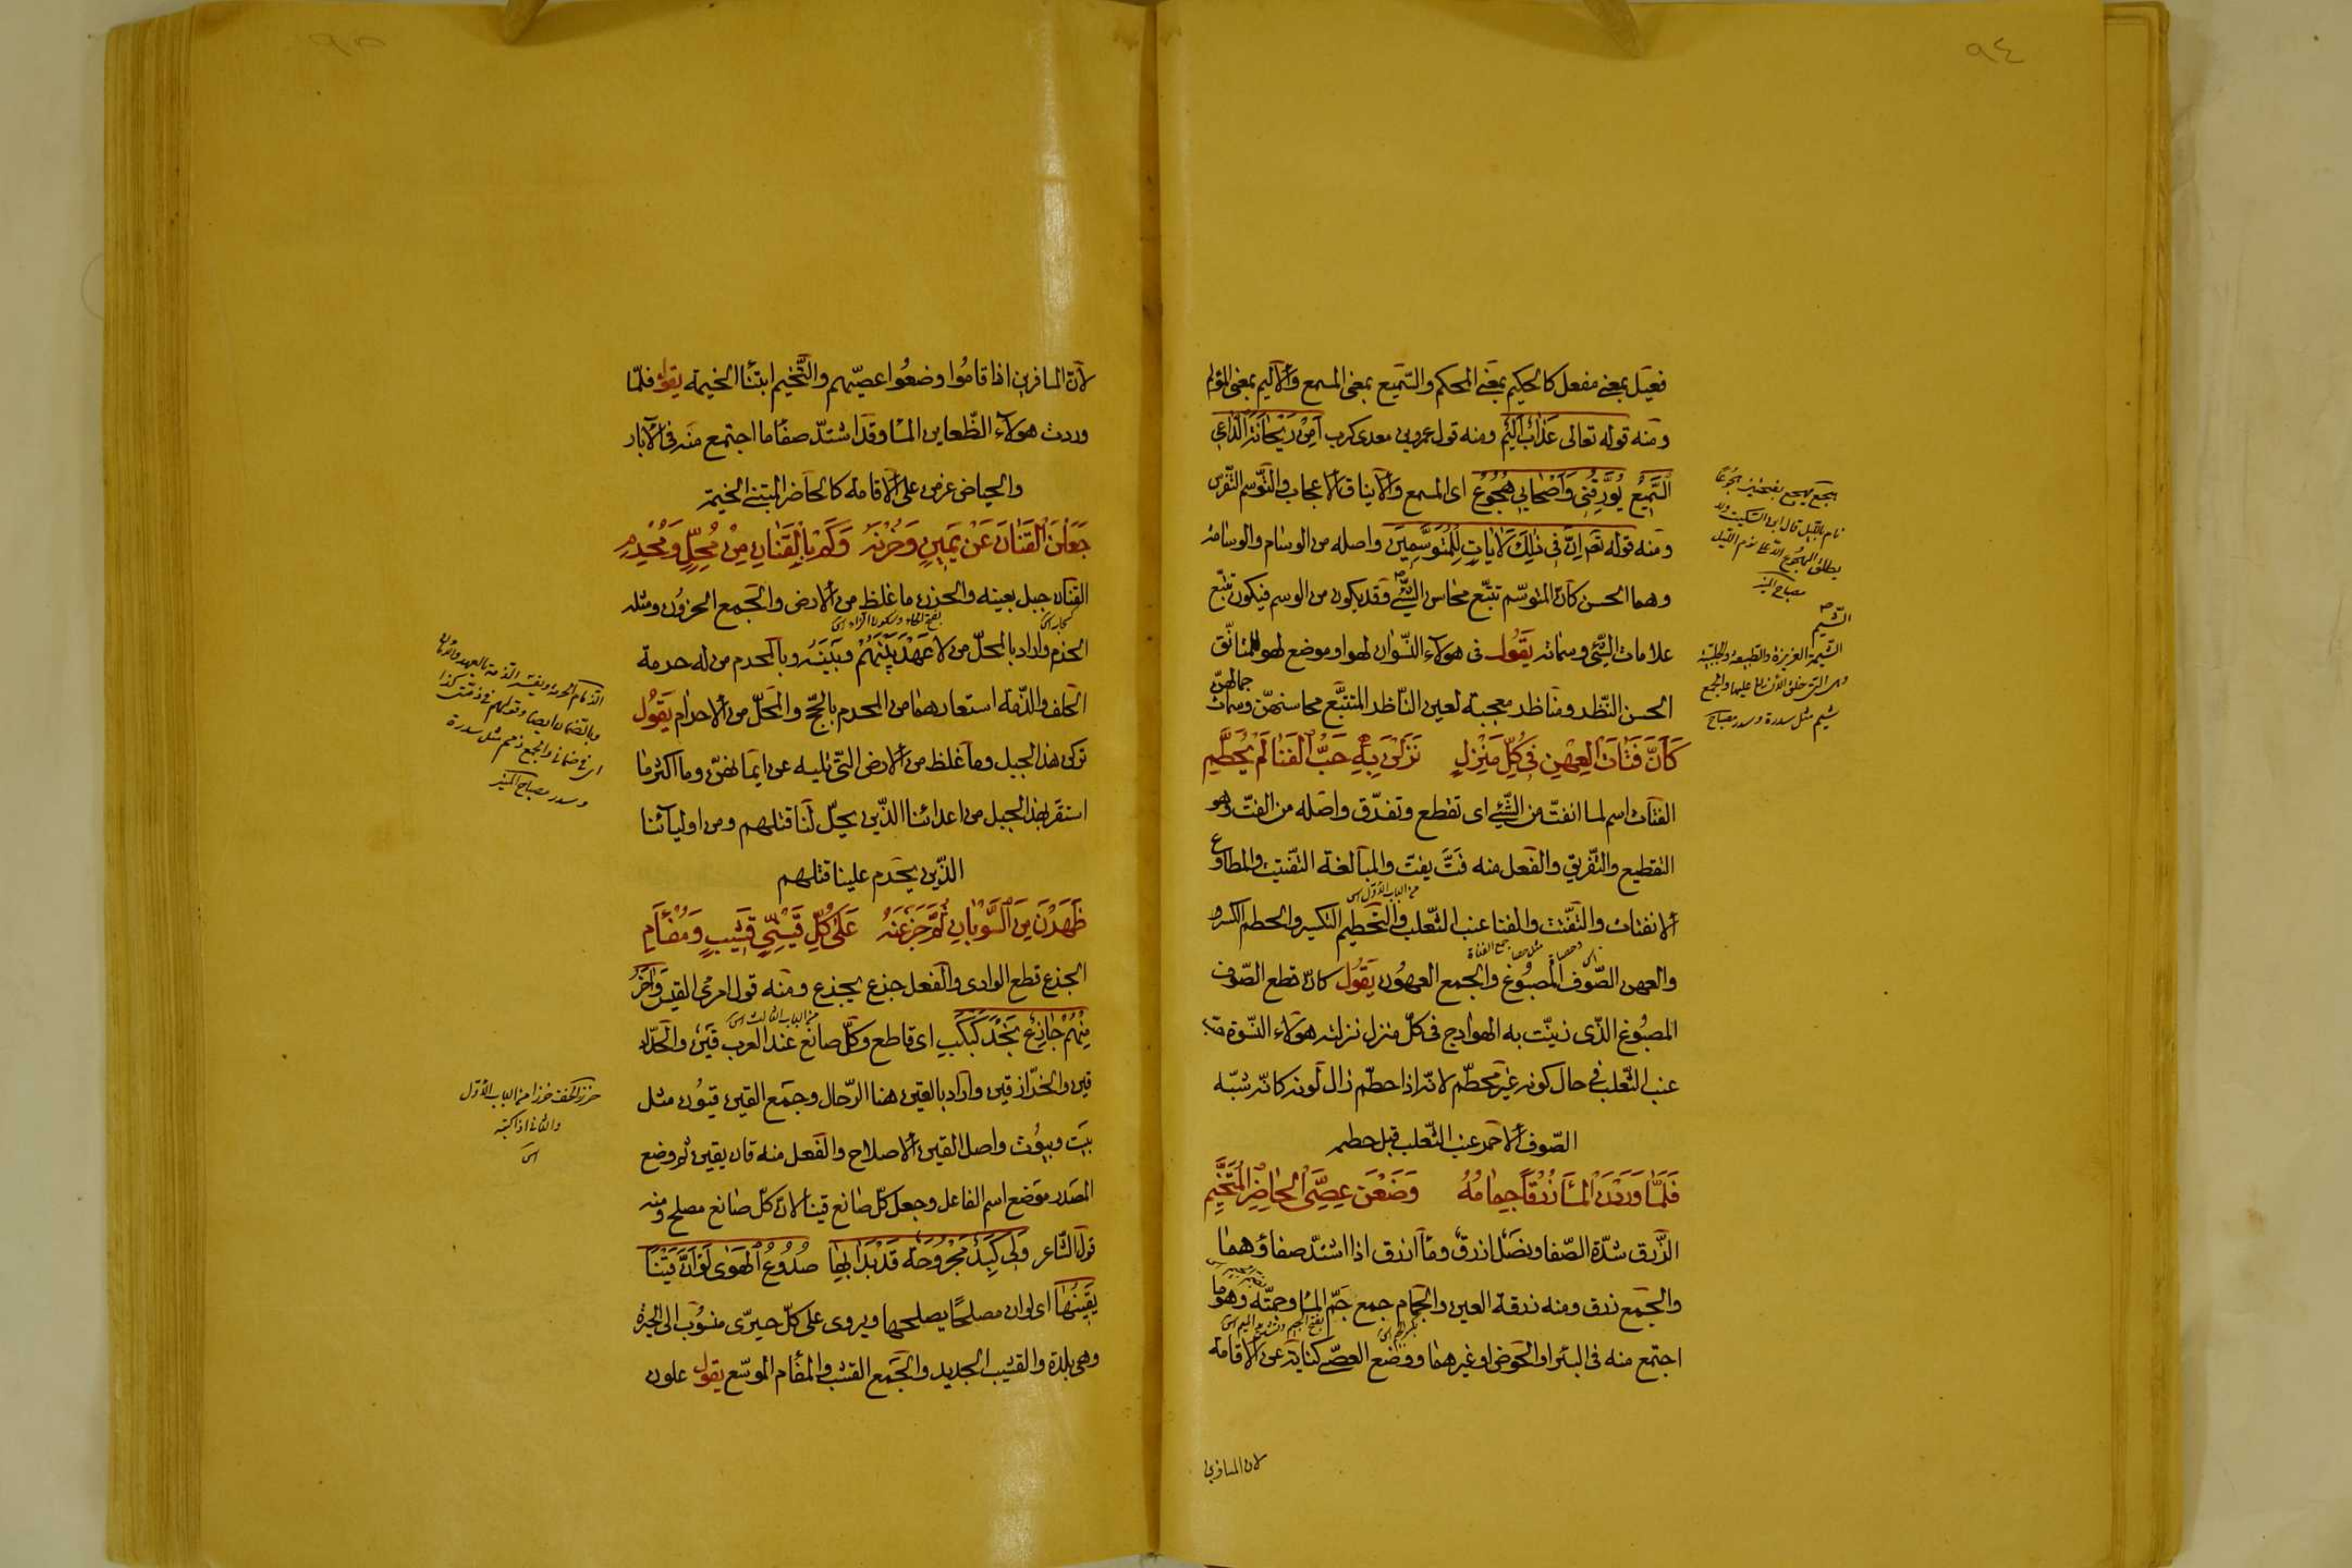 ٩٤
فعيل بمعنى مفعل كالحكيم بمعنى المحكم والسّميع بمعنى المسمع والاليم بمعنى المؤلم
ومنه قوله تعالى عَذَابٌ اَلِيْمٌ ومنه قول عمروبن معدى كرب اَمِنْ رَيْحَانَةَ الدَّاعِى
السَّمِيْعُ يُوَرِّقُنِى وَاَصْحَابِى هُجُوْعٌ اى المسمع والايناق الاعجاب والتوسّم التفرّس
ومنه قوله تعم اِنَّ فِى ذٰلِكَ لَاٰيَاتٍ لِلْمُتَوَسِّمِيْنَ واصله من الوسام والوسامة
وهما الحسن كانّ المتوسّم تتبّع محاسن الشّئ وقد يكون من الوسم فيكون تتبّع
علامات الشّئ وسماته يَقُولُ فى هولاء النّسوان لهوا وموضع لهو للمتأنّق
الحسن النّظر ومناظر معجبة لعين النّاظر المتتبّع محاسنهنّ وسمات
جمالهنّ
كَاَنَّ فَتَاتَ الْعِهْنِ فِى كُلِّ مَنْزِلٍ نَزَلْنَ بِهِ حَبُّ الْفَنَا لَمْ يُحَطَّمِ
الفتات اسم لما انفتّ من الشّيئ اى تقطع وتفرّق واصله من الفتّ وهو
التقطيع والتّفريق والفعل منه فَتَّ يفتّ والمبالغة التّفتيت والمطاوع
من الباب الاوّل
الانفتات والتّفتّت والفنا عنب الثّعلب والتّحطيم التكسير والحطم الكسر
مثل حصا جمع الفناة
والعهن الصّوف المصبُوغ والجمع العهوُن يَقُولُ كانّ قطع الصّوف
المصبُوغ الذّى زينّت به الهوادج فى كلّ منزل نزلته هولاء النّسوة حبّ
عنب الثّعلب فى حال كونه غير محطّم لانّه اذا حطّم زال لونه كانّه شبّه
الصّوف الاحمر عنب الثّعلب قبل حطمه
فَلَمَّا وَرَدْنَ الْمَاَ زُرْقًا جِمَامُهُ وَضَعْنَ عِصِىَّ الْحَاضِرِ الْمُتَخَيِّمِ
الزّرق شدّة الصّفا ونصل ازرق وماَ ازرق اذا اشتدّ صفاؤهما
والجمع زرق ومنه زرقة العين والجمام جمع جمّ الما وجمّته وهو ما
اجتمع منه فى البئر او الحوض او غيرهما ووضع العصىّ كناية عن الاقامة
لان المسافرين
هجع يهجع بفتحتين هجوعًا
نام بالليل قال ابن السّكيت ولا
يطلق الهجوع الا على نوم الليل
مصباح المنير
الشّيم
الشّيمة الغريزة والطبيعة والجبلّة
وهى التى خلق الانسان عليها والجمع
شيم مثل سدرة وسدر مصباح
٩٥
لانّ المسافرين اذا قاموُا وضعوُا عصيّهم والتّخيّم ابتناَ الخيمة يقول فلمّا
وردت هولآء الظّعاين الماَ وقد اشتدّ صفاَ ما اجتمع منه فى الآبار
والحياض عزمن على الاقامة كالحاضر المبتنى الخيمة
جَعَلْنَ الْقَنَانَ عَنْ يَمِيْنٍ وَحَزْنَهُ وَكَمْ بِالْقَنَانِ مِنْ مُحِلٍّ وَمُحْرِمِ
القنان جبل بعينه والحزن ما غلظ من الارض والجمع الحزوُن ومثله
الحزم واراد بالمحلّ من لا عَهْدَ بَيْنَهُمْ وبَيْنَهُ وبالمحرم من له حرمة
الحلف والذّمّة استعارهما من المحرم بالحجّ والمحلّ من الاحرام يَقُولُ
تركن هذا الجبل وما غلظ من الارض التّى تليه عن ايمانهنّ وما اكثر ما
استقرّ بهذا الجبل من اعدائنا الذّين يحلّ لنا قتلهم ومن اوليآئنا
الذّين يحرم علينا قتلهم
ظَهَرْنَ مِنَ السُّوْبَانِ ثُمَّ جَزَعْنَهُ عَلَى كُلِّ قَيْنِىٍّ قَشِيْبٍ وَمُفْاَمِ
الجزع قطع الوادى والفعل جزع يجزع ومنه قول امرئ القيس وَاٰخَرُ
من الباب الثالث
مِنْهُمْ جَازِعٌ نَجْدَ كَبْكَبِ اى قاطع وكلّ صانع عند العرب قين والحدّاد
قين والخرّاز قين واراد بالقين هنا الرّحال وجمع القين قيوُن مثل
بيت وبيوُت واصل القين الاصلاح والفعل منه قان يقين ثم وضع
المصدر موضع اسم الفاعل وجعل كلّ صانع قينا لان كلّ صانع مصلح ومنه
قول الشّاعر وَلِى كَبِدٌ مَجْرُوْحَةٌ قَدْ بَدَا بِهَا صُدُوْعُ الْهَوٰى لَوْ اَنَّ قَيْنًا
يَقِيْنُهَا اى لوان مصلحًا يصلحها ويروى على كلّ حيرىّ منسوُب الى الحيرة
وهى بلدة والقشيب الجديد والجمع القشب والمفأم الموسّع يقول علون
الذّمام الحرمة ويفسّر الذّمة بالعهد وبالامان
وبالضّمان ايضا وقولهم فى ذمّتى كذا
اى فى ضمانى والجمع ذمم مثل سدرة
وسدر مصباح المنير
والثانى اذا كتبته